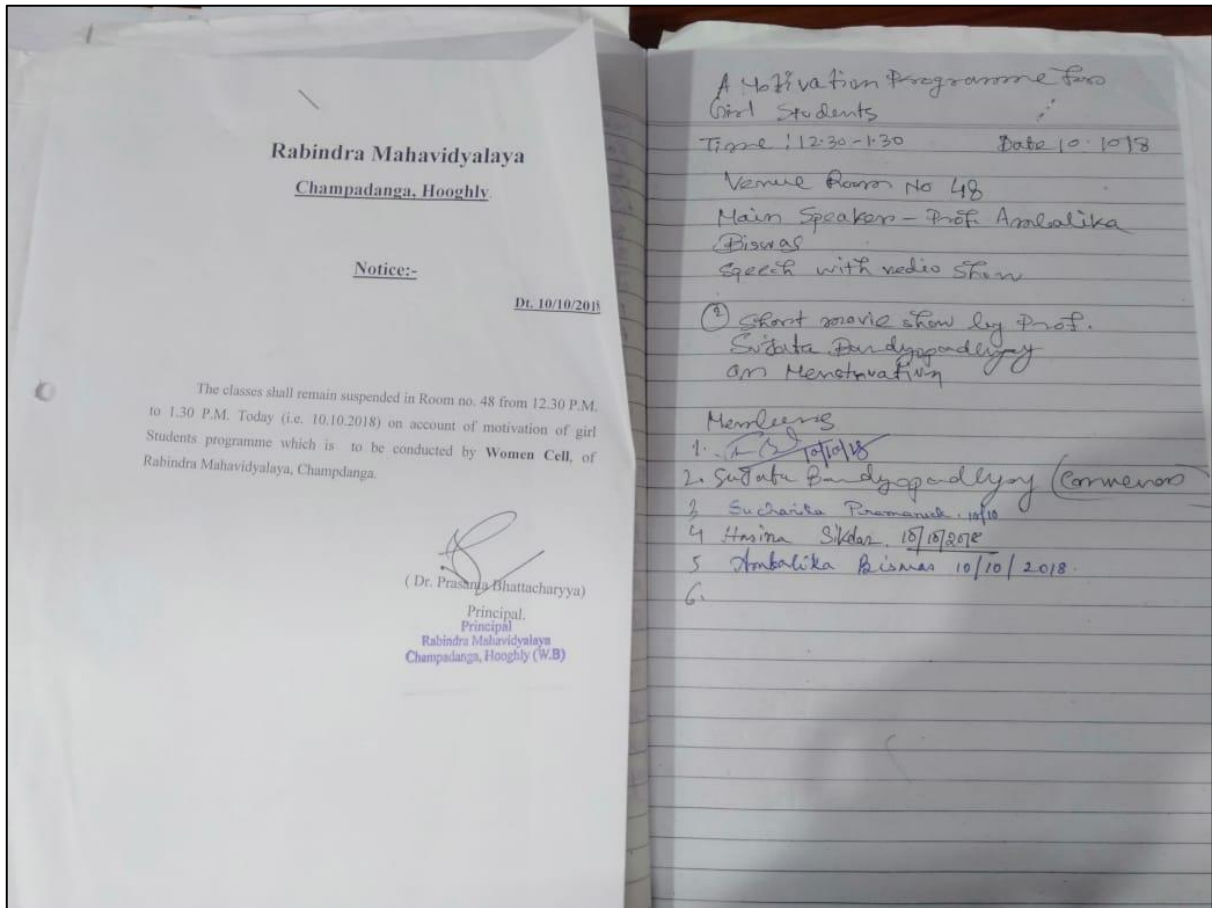 Rabindra Mahavidyalaya
Champadanga, Hooghly.
Notice:-
Dt. 10/10/2018
The classes shall remain suspended in Room no. 48 from 12.30 P.M.
to 1.30 P.M. Today (i.e. 10.10.2018) on account of motivation of girl
Students programme which is to be conducted by Women Cell, of
Rabindra Mahavidyalaya, Champdanga.
( Dr. Prasanta Bhattacharyya)
Principal.
Principal
Rabindra Mahavidyalaya
Champadanga, Hooghly (W.B)
A Motivation Programme for
Girl Students
Time : 12.30-1.30 Date 10.10.18
Venue Room No 48
Main Speaker - Prof. Ambalika
Biswas
Speech with vedio show
② Short movie show by Prof.
Sujata Bandyopadhyay
on Menstruation
Members
1. 10/10/18
2. Sujata Bandyopadhyay (Convenor)
3 Sucharita Pramanick 10/10
4 Hasina Sikdar 10/10/2018
5 Ambalika Biswas 10/10/2018.
6.